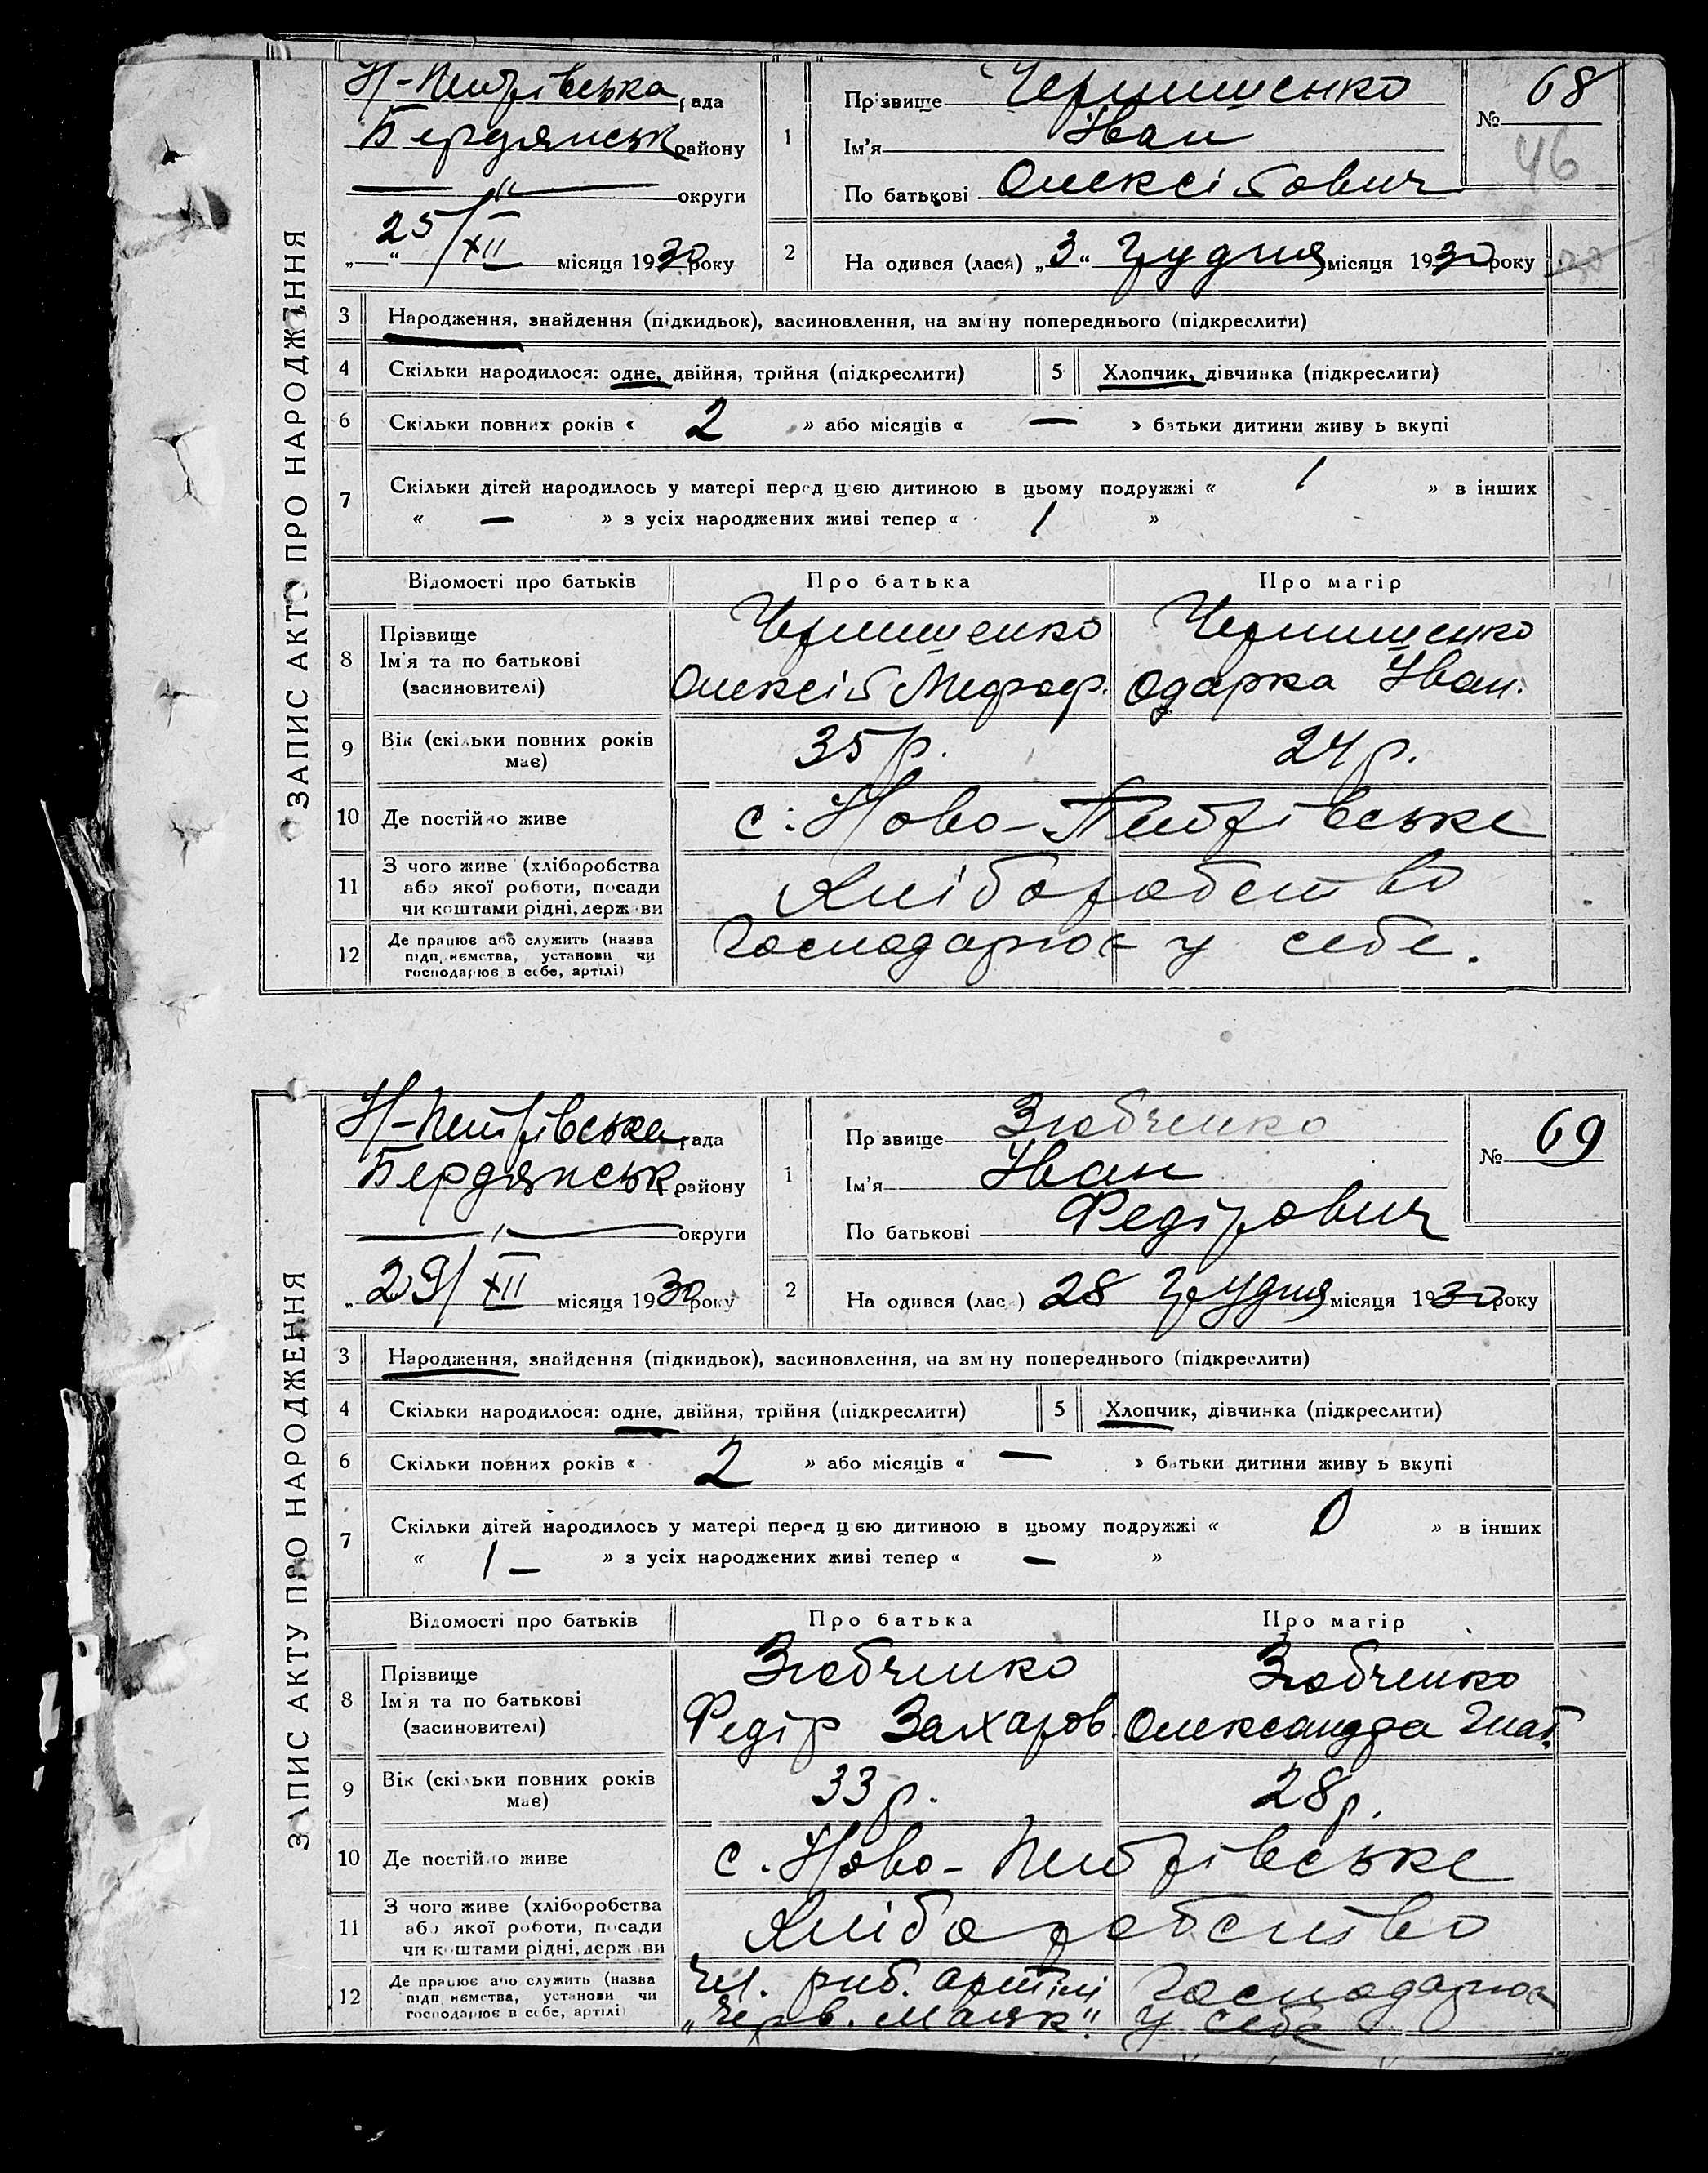 ЗАПИС АКТУ ПРО НАРОДЖЕННЯ
Н-Петрівська рада
Бердянськ району
— " — округи
25/XII місяця 1930 року
1
Прізвище Чернишенко
Ім'я Іван
По батькові Олексійович
№ 68
46
2
На одився (лася) „3“ Грудня місяця 1930 року
3 Народження, знайдення (підкидьок), засиновлення, на зміну попереднього (підкреслити)
4 Скільки народилося: одне, двійня, трійня (підкреслити) 5 Хлопчик, дівчинка (підкреслити)
6 Скільки повних років « 2 » або місяців « — » батьки дитини живу ь вкупі
7 Скільки дітей народилось у матері перед цією дитиною в цьому подружжі « 1 » в інших
« — » з усіх народжених живі тепер « 1 »
Відомості про батьків Про батька Про матір
8 Прізвище
Ім'я та по батькові
(засиновителі)
Чернишенко Чернишенко
Олексій Одарка Іван.
9 Вік (скільки повних років
має)
35 р. 24 р.
10 Де постійно живе с. Ново-Петрівське
11 З чого живе (хліборобства
або якої роботи, посади
чи коштами рідні, держави
Хліборобство
12 Де працює або служить (назва
підприємства, установи чи
господарює в себе, артілі)
Господарює у себе.
ЗАПИС АКТУ ПРО НАРОДЖЕННЯ
Н-Петрівська рада
Бердянськ району
— " — округи
„ 29/XII місяця 1930 року
1
Пр звище Зюбченко
Ім'я Іван
По батькові Федірович
№ 69
2
На одився (лас ) 28 Грудня місяця 1930 року
3 Народження, знайдення (підкидьок), засиновлення, на зм ну попереднього (підкреслити)
4 Скільки народилося: одне, двійня, трійня (підкреслити) 5 Хлопчик, дівчинка (підкреслити)
6 Скільки повних років « 2 » або місяців « — » батьки дитини живу ь вкупі
7 Скільки дітей народилось у матері перед цією дитиною в цьому подружжі « 0 » в інших
« 1 – » з усіх народжених живі тепер « — »
Відомості про батьків Про батька Про матір
8 Прізвище
Ім'я та по батькові
(засиновителі)
Зюбченко Зюбченко
Федір Захаров. Олександра Гнат.
9 Вік (скільки повних років
має)
33 р. 28 р.
10 Де постійно живе с. Ново-Петрівське
11 З чого живе (хліборобства
або якої роботи, посади
чи коштами рідні, держави
Хліборобство
12 Де працює або служить (назва
підприємства, установи чи
господарює в себе, артілі)
Чл. риб. артілі Господарює
„Черв. Маяк". у себе